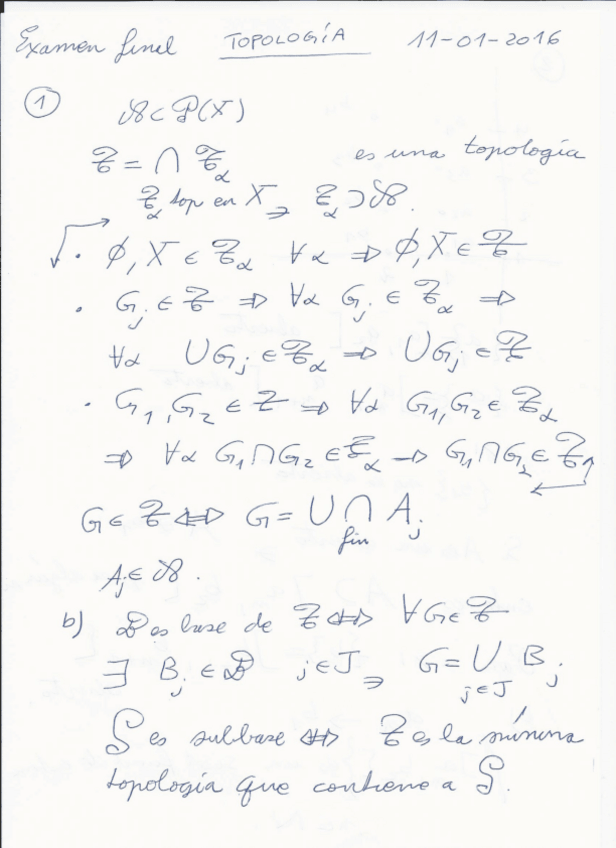 Examen final TOPOLOGÍA 11-01-2016
① 𝒜 ⊂ 𝒫(X)
𝒯 = ∩ 𝒯α es una topología
𝒯α top en X ∋ 𝒯α ⊃ 𝒜.
· ∅, X ∈ 𝒯α ∀α ⇒ ∅, X ∈ 𝒯
· Gj ∈ 𝒯 ⇒ ∀α Gj ∈ 𝒯α ⇒
∀α ∪Gj ∈ 𝒯α ⇒ ∪Gj ∈ 𝒯
· G1, G2 ∈ 𝒯 ⇒ ∀α G1, G2 ∈ 𝒯α
⇒ ∀α G1∩G2 ∈ 𝒯α → G1∩G2 ∈ 𝒯
G ∈ 𝒯 ⇔ G = ∪ ∩ Aj
fin
Aj ∈ 𝒜.
b) ℬ es base de 𝒯 ⇔ ∀G ∈ 𝒯
∃ Bj ∈ ℬ j ∈ J ∋ G = ∪ Bj
j∈J
S es subbase ⇔ 𝒯 es la mínima
topología que contiene a S.